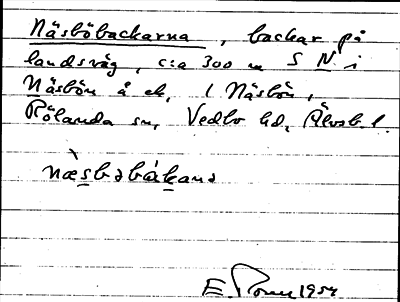 Näsböbackarna, backar på
landsväg, c:a 300 m S N. i
Näsbön å ek, 1 Näsbön,
Rölanda sn, Vedbo hd, Älvsb. l.
næsbɔbákanɑ
E. 1954